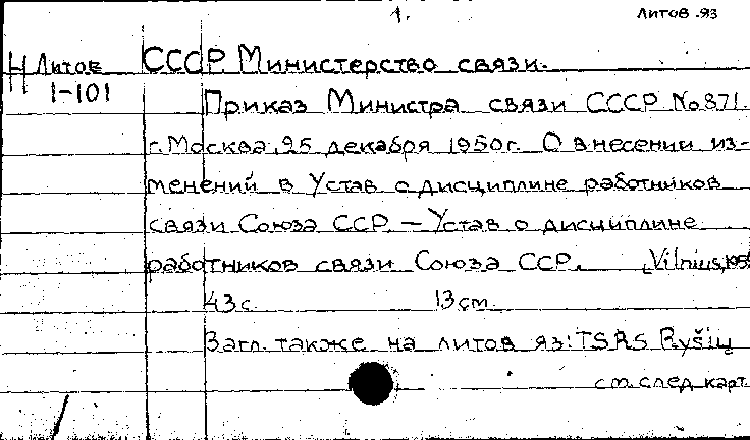 1.
Литов. яз
Н Литов СССР Министерство связи.
1-101
Приказ Министра связи СССР No 871.
г. Москва, 25 декабря 1950 г. О внесении из-
менений в Устав о дисциплине работников
связи Союза ССР. — Устав о дисциплине
работников связи Союза ССР. Vilnius,
43 с. 13 см.
Загл. также на литов яз: TSRS Ryšių
см. след карт.